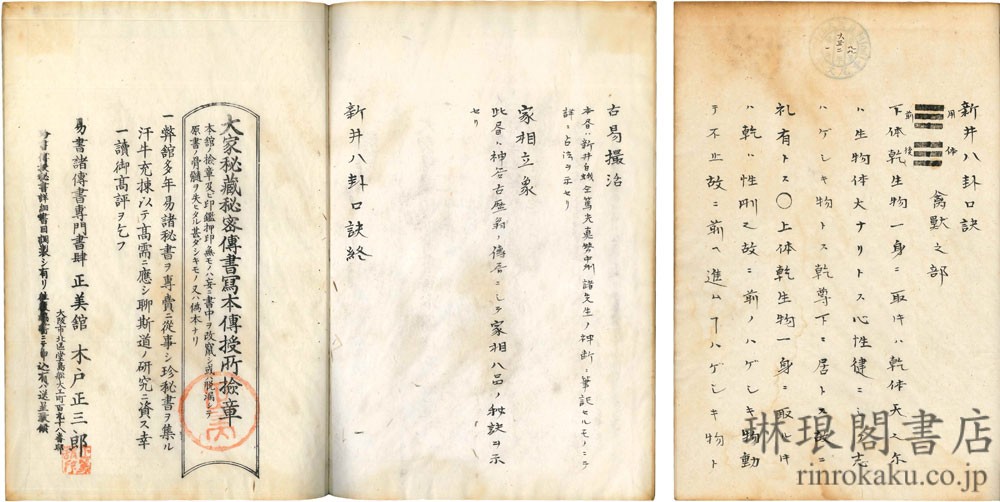 新井八卦口訣
用 体
前 後
禽獸之部
下体乾生物一身ニ取ケハ乾体天
ハ生物体大ナリトス心性健ニシテ志
ハゲシキ物トス乾尊下ニ居トス故ニ
礼有トス〇上体乾生物一身ニ取トキ
ハ乾ハ性剛又故ニ前ノハゲシキ物動
テ不止故ニ前ヘ進ムヿハゲシキ物ト
古易撮治
本書ハ新井白蛾
諸先生ノ神断ヲ筆記セルモノニシテ
詳ニ占法ヲ示セリ
家相立象
此書ハ神谷古暦翁ノ傳書ニシテ家相八品ノ秘訣ヲ示
セリ
新井八卦口訣終
大家秘藏秘密傳書寫本傳授所撿章
本舘ノ撿章及ビ印鑑押印無モノハ妄ニ書中ヲ改竄シ或ハ脱漏シテ
原書ノ骨髓ヲ失ヒタル甚ダシキモノ又ハ僞本ナリ
一弊舘多年易諸秘書ヲ專賣ニ從事シ珍秘書ヲ集ル
汗牛充棟以テ高需ニ應シ聊斯道ノ研究ニ資ス幸
一讀御高評ヲ乞フ
大阪市北區堂島船大工町百九十八番邸
易書諸傳書專門書肆 正美舘 木戸正三郎
琳琅閣書店
rinrokaku.co.jp